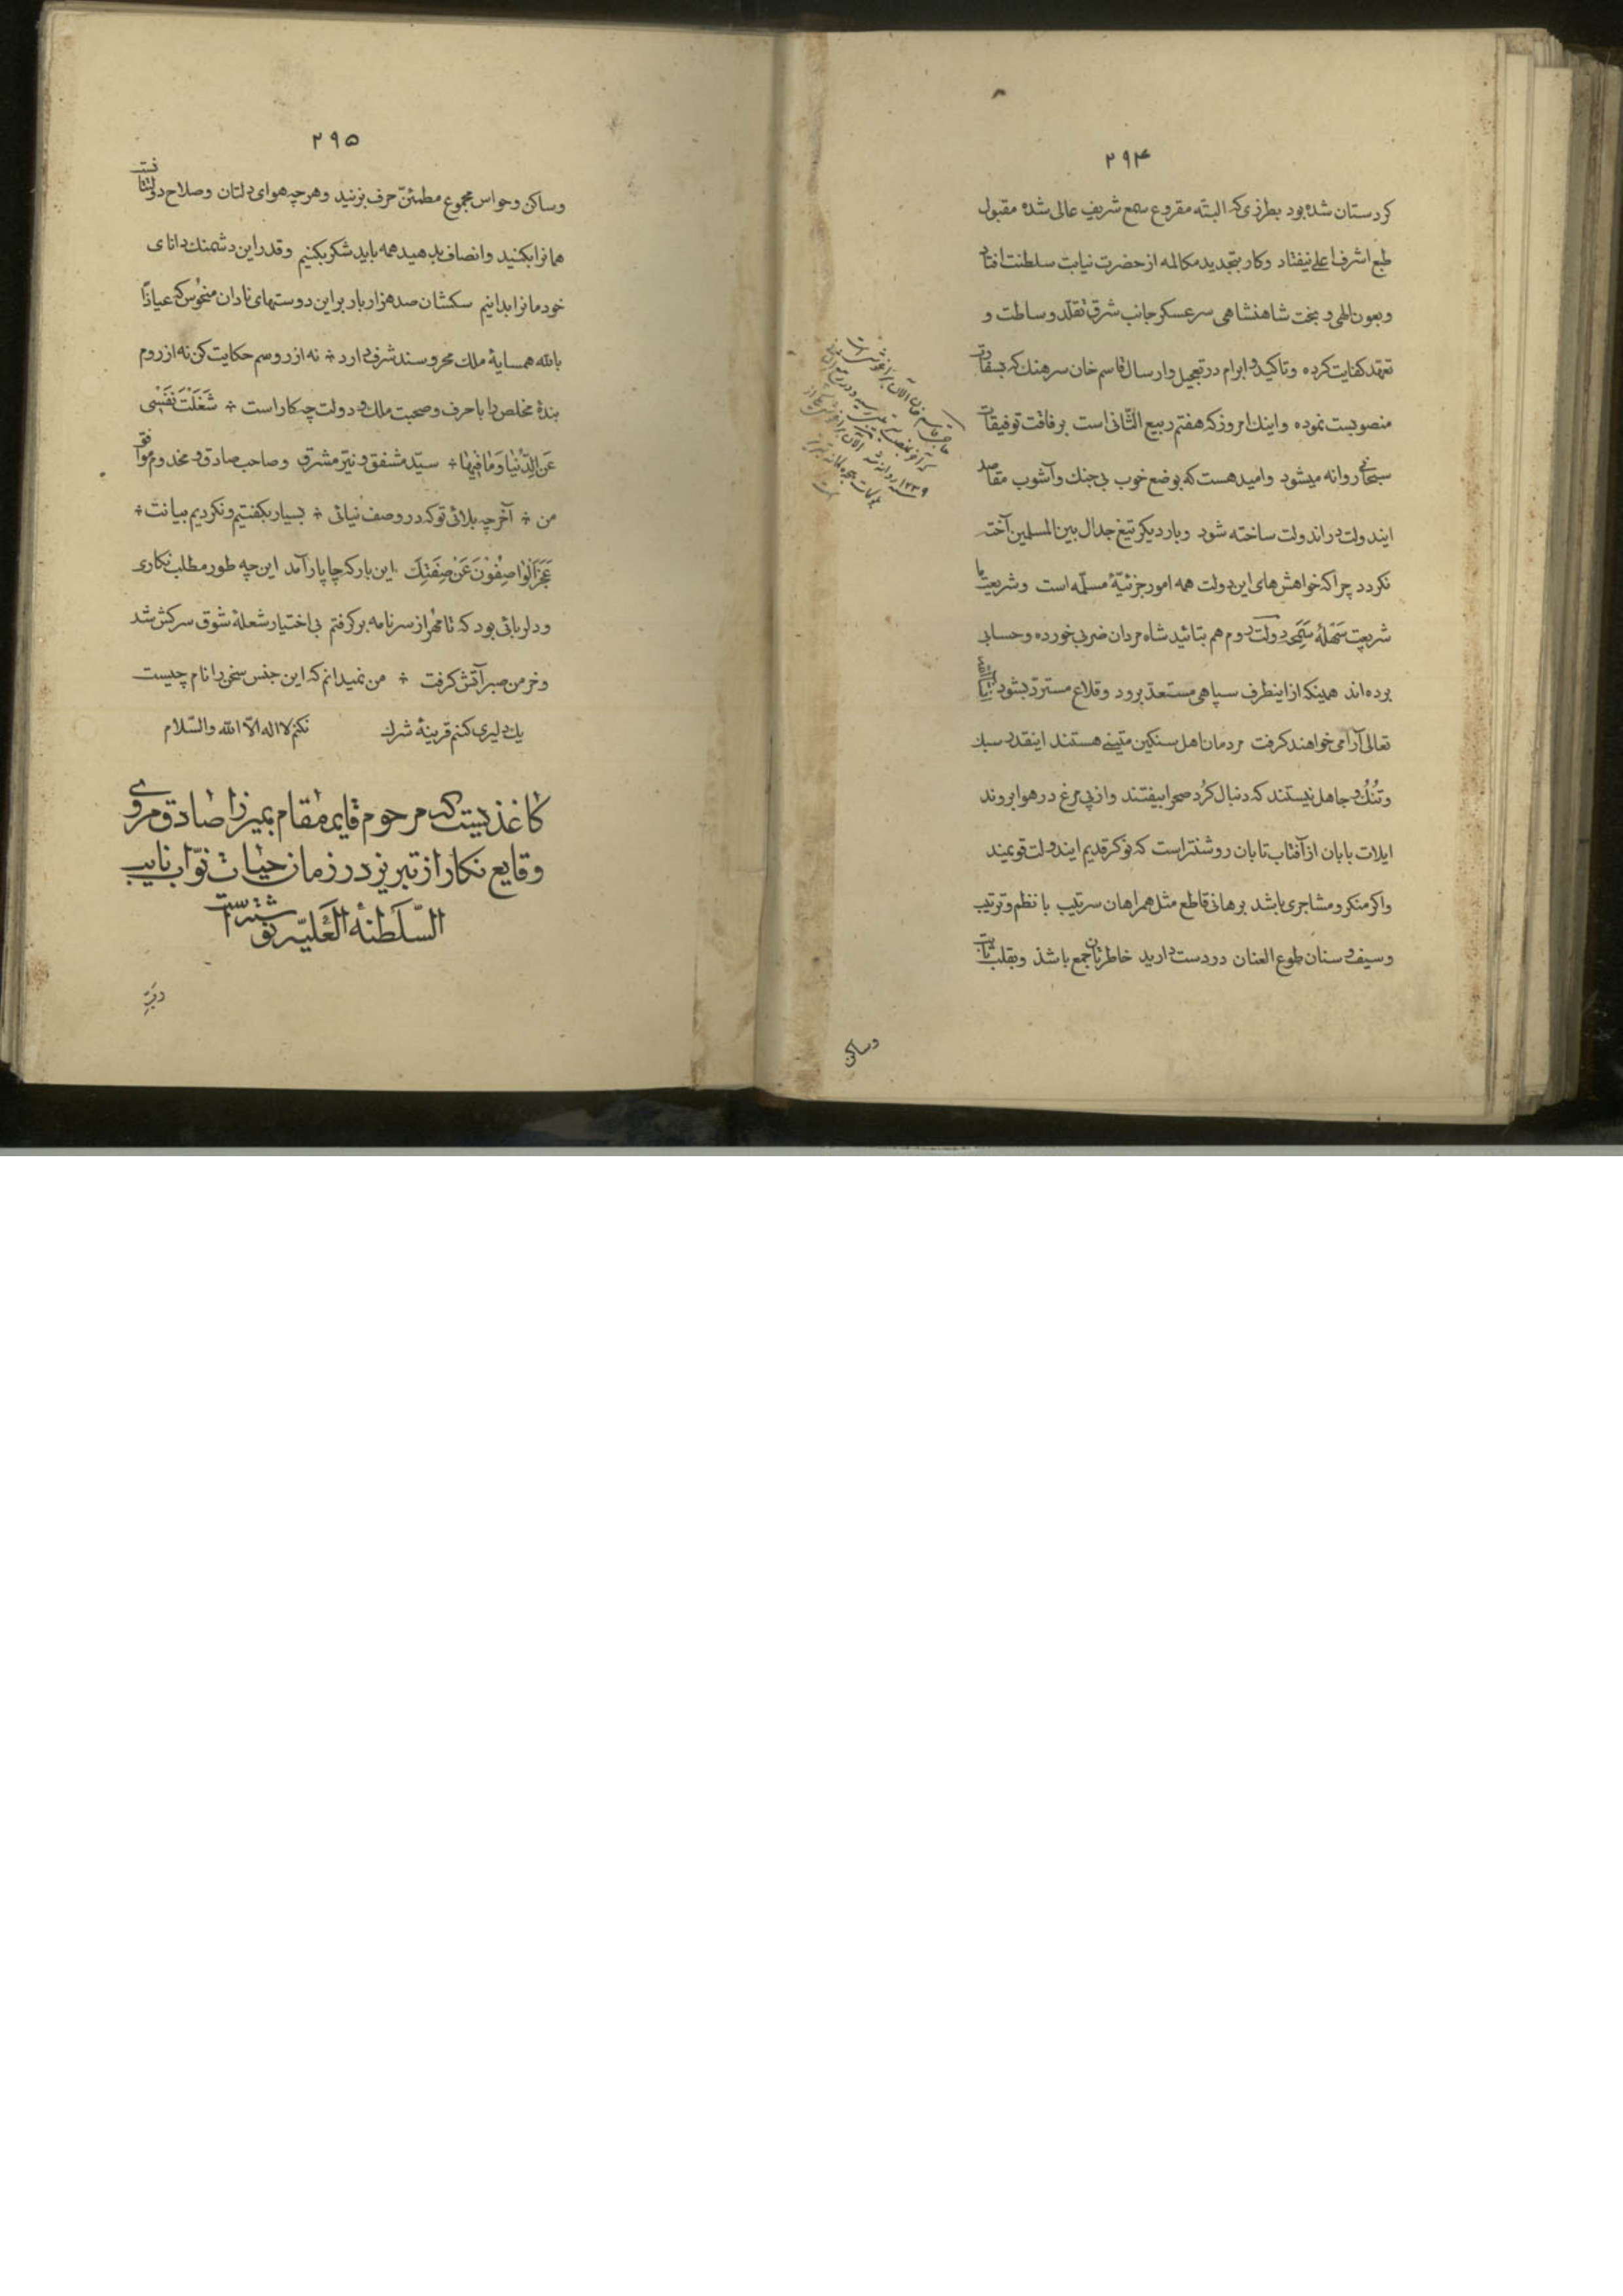 ۲۹۴
کردستان شده بود بطرزی که البته مقروع سمع شریف عالی شده مقبول
طبع اشرف اعلی نیفتاد و کار بتجدید مکالمه از حضرت نیابت سلطنت افتاد
و بعون الهی و بخت شاهنشاهی سرعسکر جانب شرق تقلد وساطت و
تعهد کفایت کرده و تاکید و ابرام در تعجیل و ارسال قاسم خان سرهنك که بسفارت
منصوبست نموده و اینك امروز که هفتم ربیع الثّانی است برفاقت توفیقات
سبحانی روانه میشود و امید هست که بوضع خوب بی جنك و آشوب مقاصد
ایندولت در اندولت ساخته شود و بار دیگر تیغ جدال بین المسلمین آخته
نکردد چرا که خواهش های این دولت همه امور جزئیّهٔ مسلّمه است و شریعت ما
شریعت سَهْلهٔ سَمْحه دولت دوم هم بتائید شاه مردان ضربی خورده و حسابی
برده اند همینکه از اینطرف سپاهی مستعد برود و قلاع مسترد بشود انشاءالله
تعالی آرامی خواهند کرفت مردمان اهل سنکین متینی هستند اینقدر سبك
و تُنُك و جاهل نیستند که دنبال کُرد صحرا بیفتند و از پی مرغ در هوا بروند
ایلات بابان از آفتاب تابان روشنتر است که نوکر قدیم ایندولت قویمند
واکر منکر و مشاجری باشد برهانی قاطع مثل همراهان سرتیب با نظم و ترتیب
و سیف و سنان طوع العنان در دست دارید خاطرتان جمع باشد و بقلب ثابت
۱۲۳۹
وساکن
۲۹۵
وساکن و حواس مجموع مطمئنّ حرف بزنید و هرچه هوای دلتان و صلاح دولتتانست
همانرا بکنید و انصاف بدهید همه باید شکر بکنیم و قدر این دشمنك دانای
خودمانرا بدانیم سکشان صد هزار بار بر این دوستهای نادان منحوس که عیاذاً
بالله همسایهٔ ملك محروسند شرف دارد ÷ نه از روسم حکایت کن نه از روم
بندهٔ مخلص را با حرف و صحبت ملك و دولت چه کار است ÷ شَغَلْتَ نَفْسْی
عَنِ الدّنْیا وَمٰا فیها ÷ سیّد مشفق و نیّر مشرق و صاحب صادق و مخدوم موافق
من ÷ آخر چه بلائی تو که در وصف نیائی ÷ بسیار بکفتیم و نکردیم بیانت ÷
عَجَزَ الْواصِفُونَ عَنْ صِفَتِكَ این بار که چاپار آمد این چه طور مطلب نکاری
و دلربائی بود که تا مُهر از سر نامه برکرفتم بی اختیار شعلهٔ شوق سرکش شد
و خرمن صبر آتش کرفت ÷ من نمیدانم که این جنس سخن را نام چیست
یك دلیری کنم قرینهٔ شرك نکنم لا اله الّا الله والسّلام
کاغذیست که مرحوم قایم مقام بمیرزا صادق مروی
وقایع نکار از تبریز در زمان حیات نوّاب نایب
السّلطنة العَلیّه نوشته است